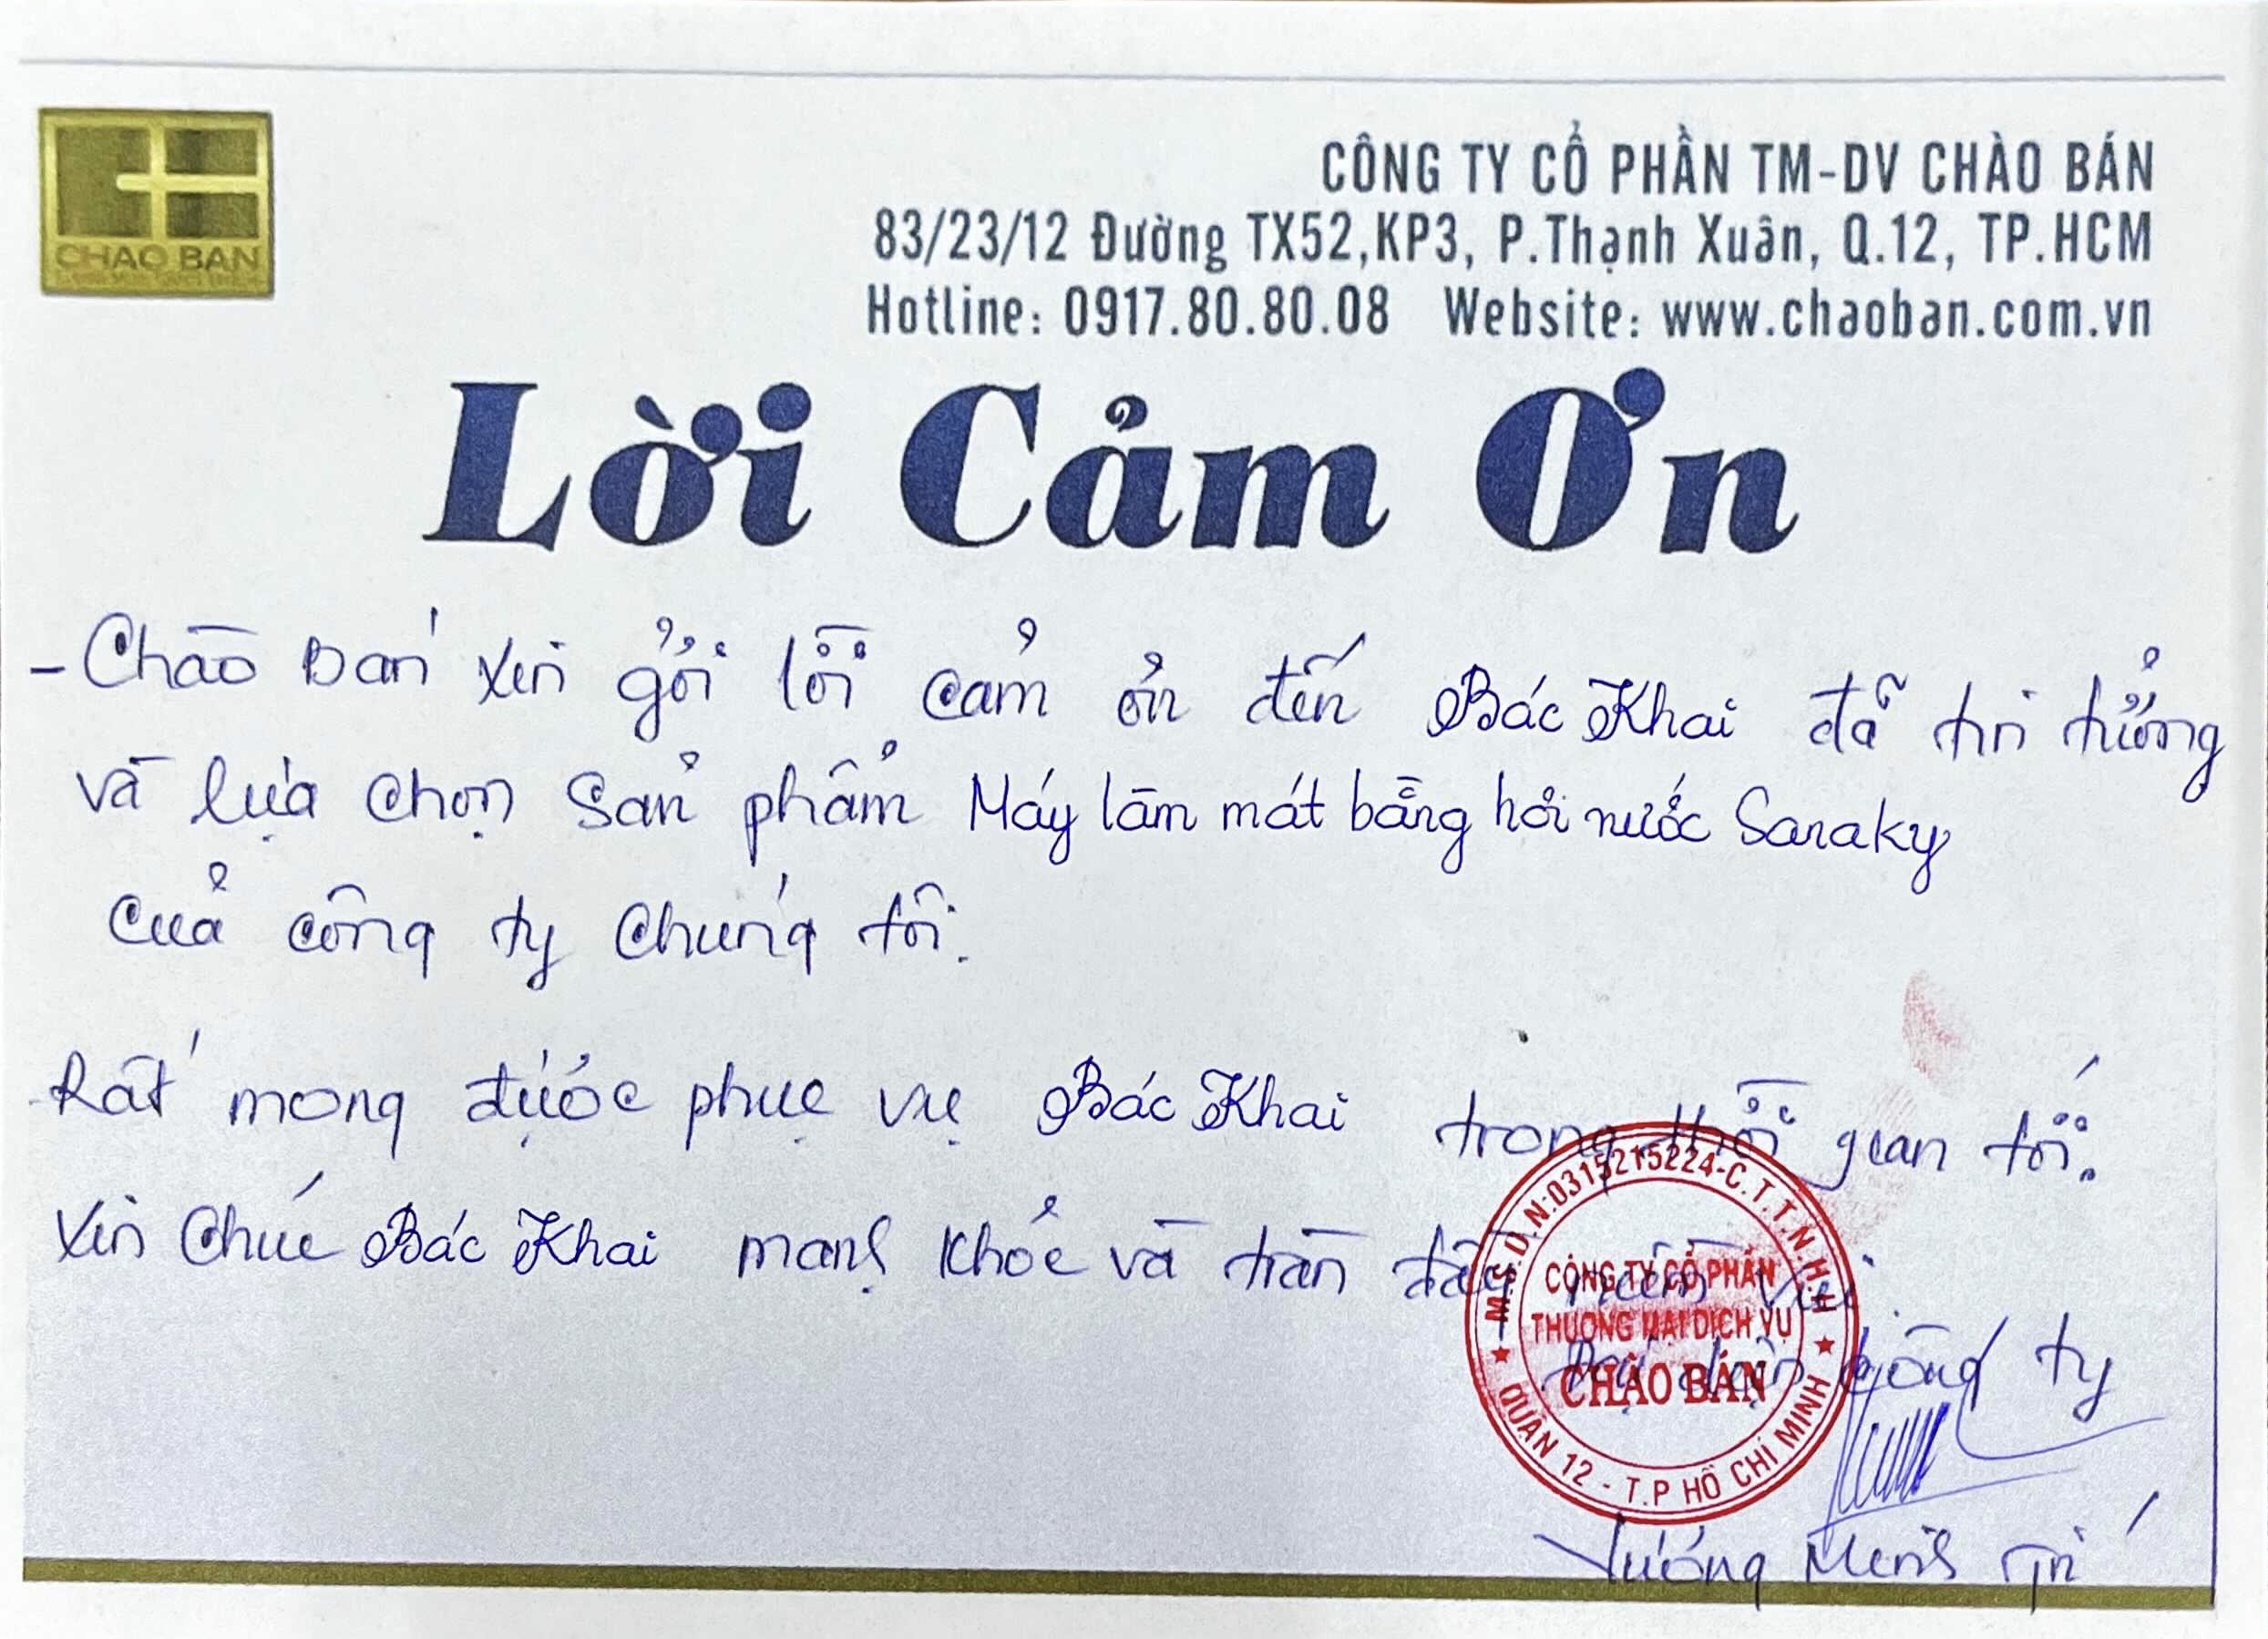 CHAO BAN
CÔNG TY CỔ PHẦN TM-DV CHÀO BÁN
83/23/12 Đường TX52,KP3, P.Thạnh Xuân, Q.12, TP.HCM
Hotline: 0917.80.80.08 Website: www.chaoban.com.vn
Lời Cảm Ơn
- Chào Bán xin gởi lời cảm ơn đến Bác Khai đã tin tưởng
và lựa chọn sản phẩm Máy làm mát bằng hơi nước Sanaky
của công ty chúng tôi.
Rất mong được phục vụ Bác Khai trong thời gian tới.
Xin chúc Bác Khai mạnh khỏe và tràn đầy niềm vui.
Đại diện công ty
M.S.D.N:0315215224-C.T.T.N.H.H
CÔNG TY CỔ PHẦN
THƯƠNG MẠI DỊCH VỤ
CHÀO BÁN
QUẬN 12 - T.P HỒ CHÍ MINH
Vương Minh Trí